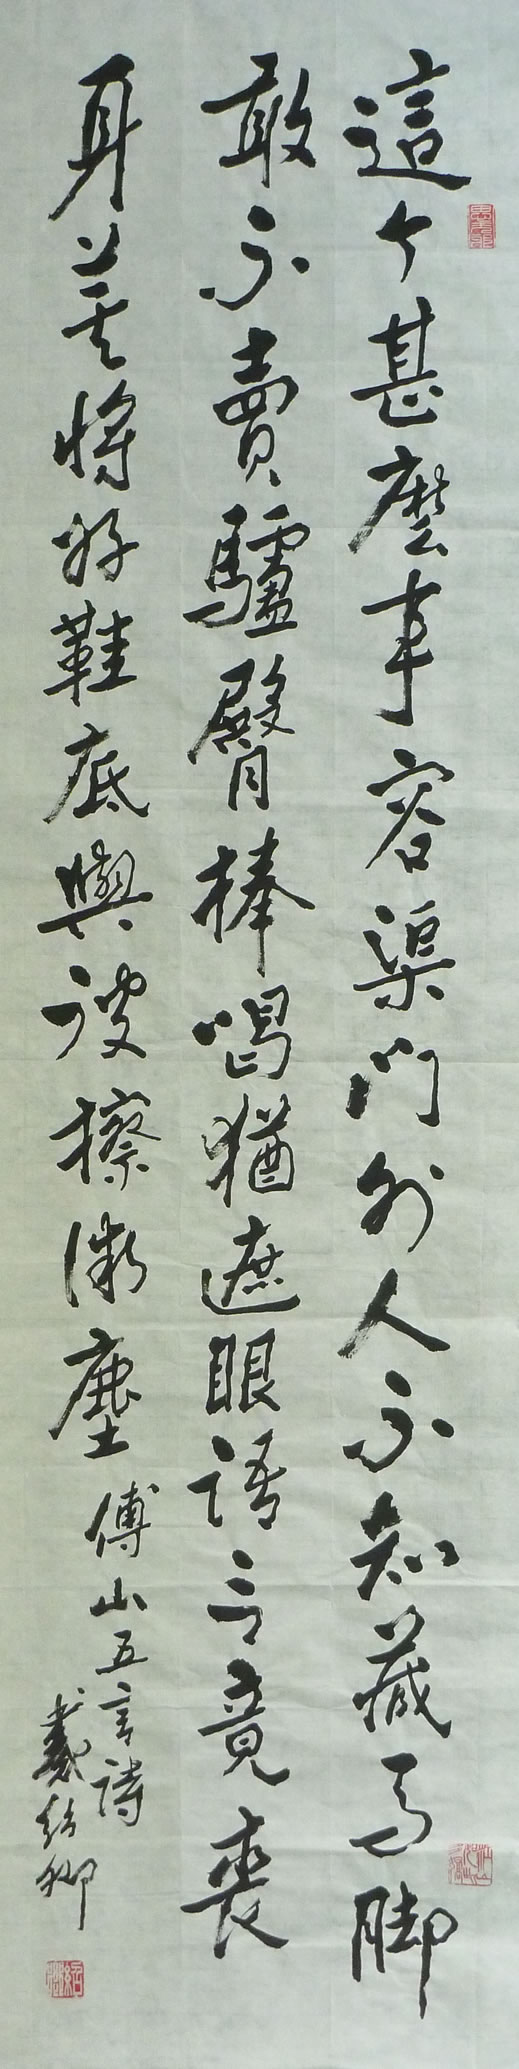 這个甚麼事容渠門外人不知藏馬脚
敢不賣驢臀棒喝猶遮眼語言竟喪
身莫將好鞋底與彼擦微塵
傅山五言詩
戴紹卿